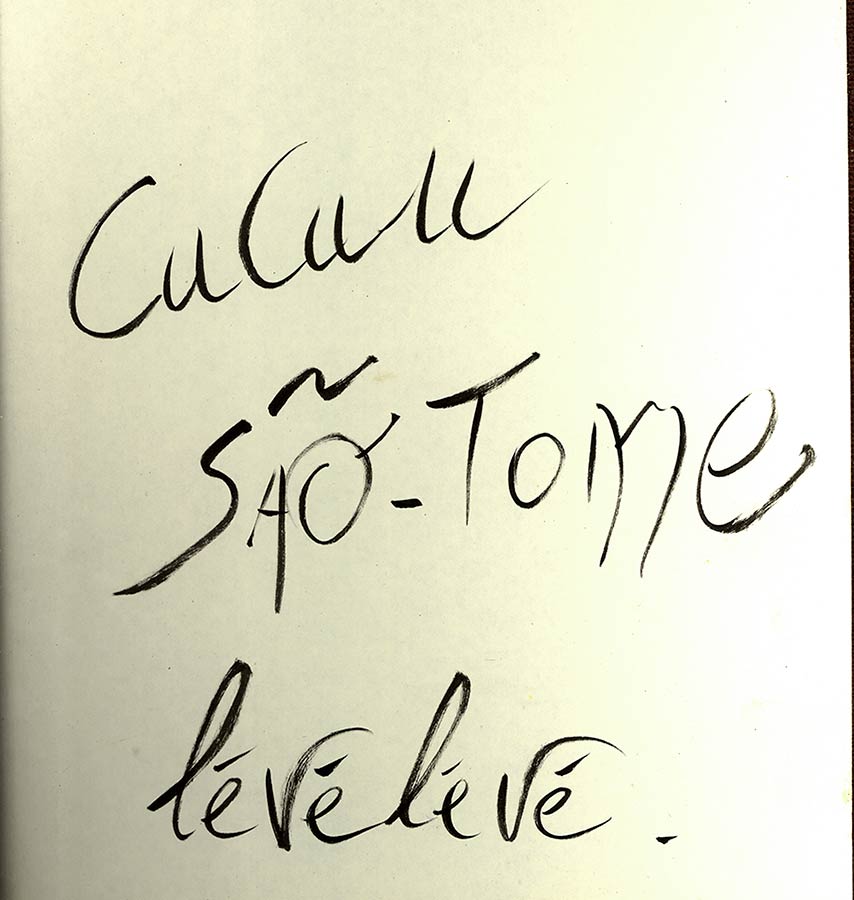 CaCau
SÃO-Tome
lévélévé.